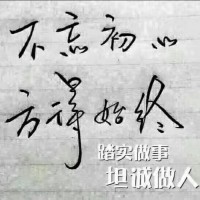 不忘初心
方得始终
踏实做事
坦诚做人